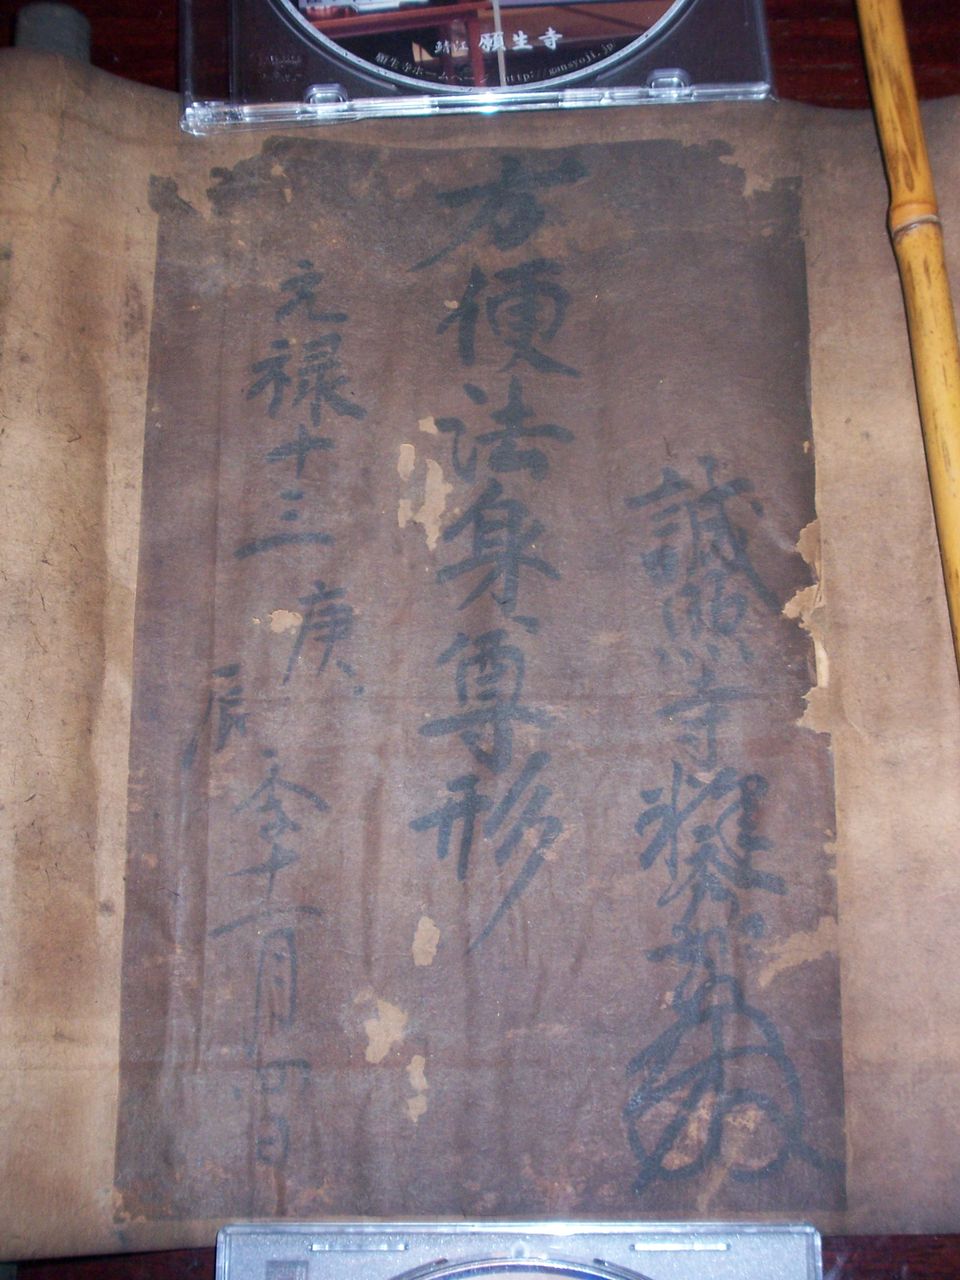 鯖江 願生寺
願生寺ホームページ http://gansyoji.jp
誠照寺釋
方便法身尊形
元禄十三庚辰季十一月四日